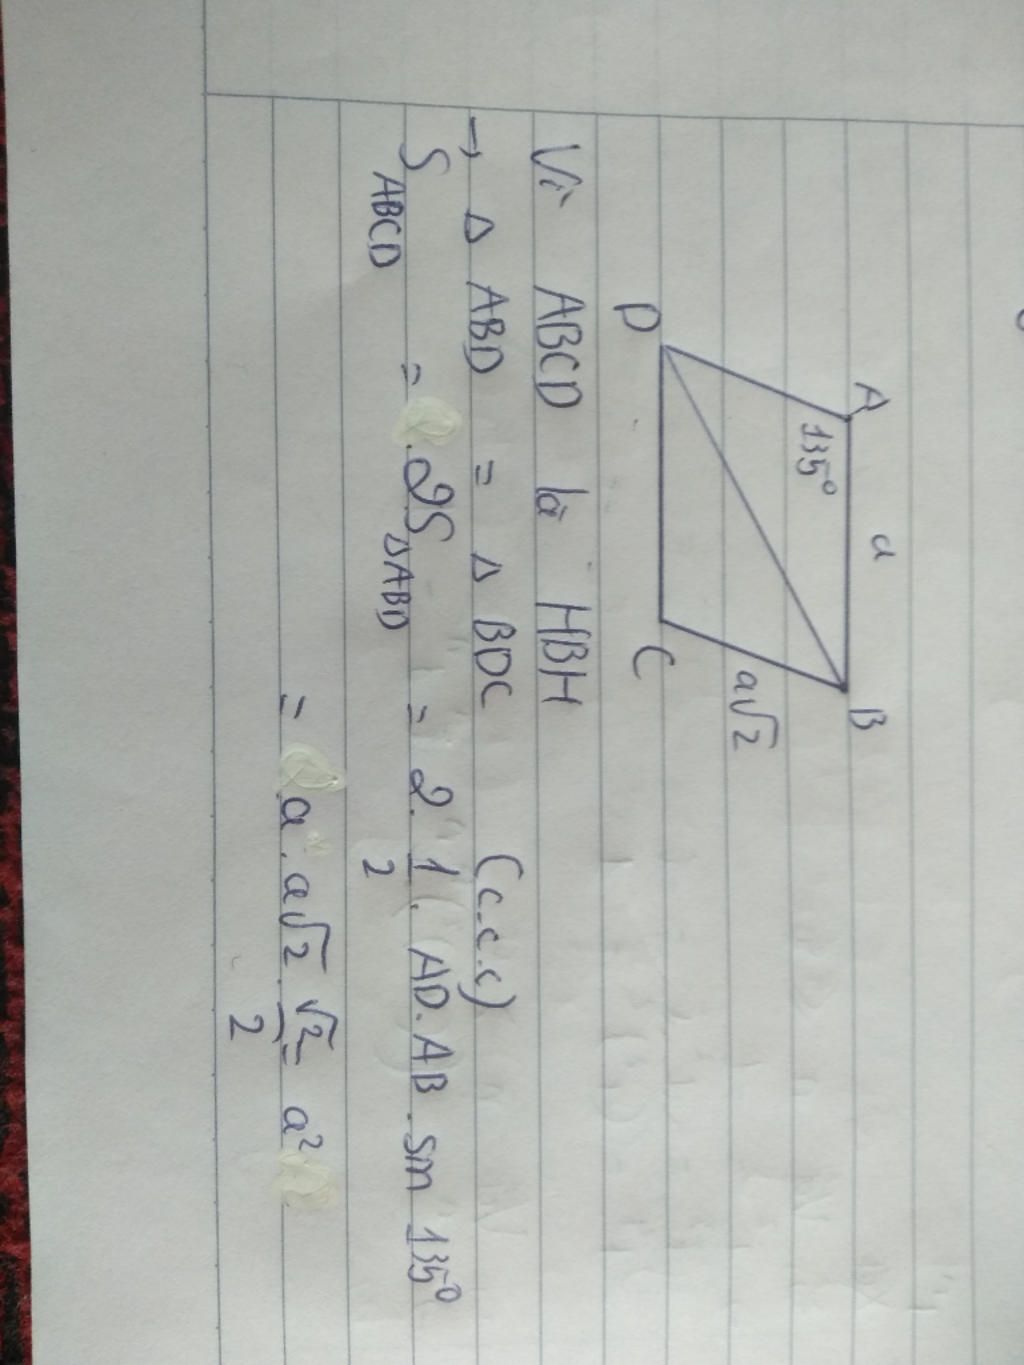 A a B
135°
a√2
D C
Vì ABCD là HBH
→ Δ ABD = Δ BDC (c.c.c)
S ABCD = 2S ΔABD = 2. 1/2 . AD. AB . sin 135°
= a . a√2 . √2/2 = a²